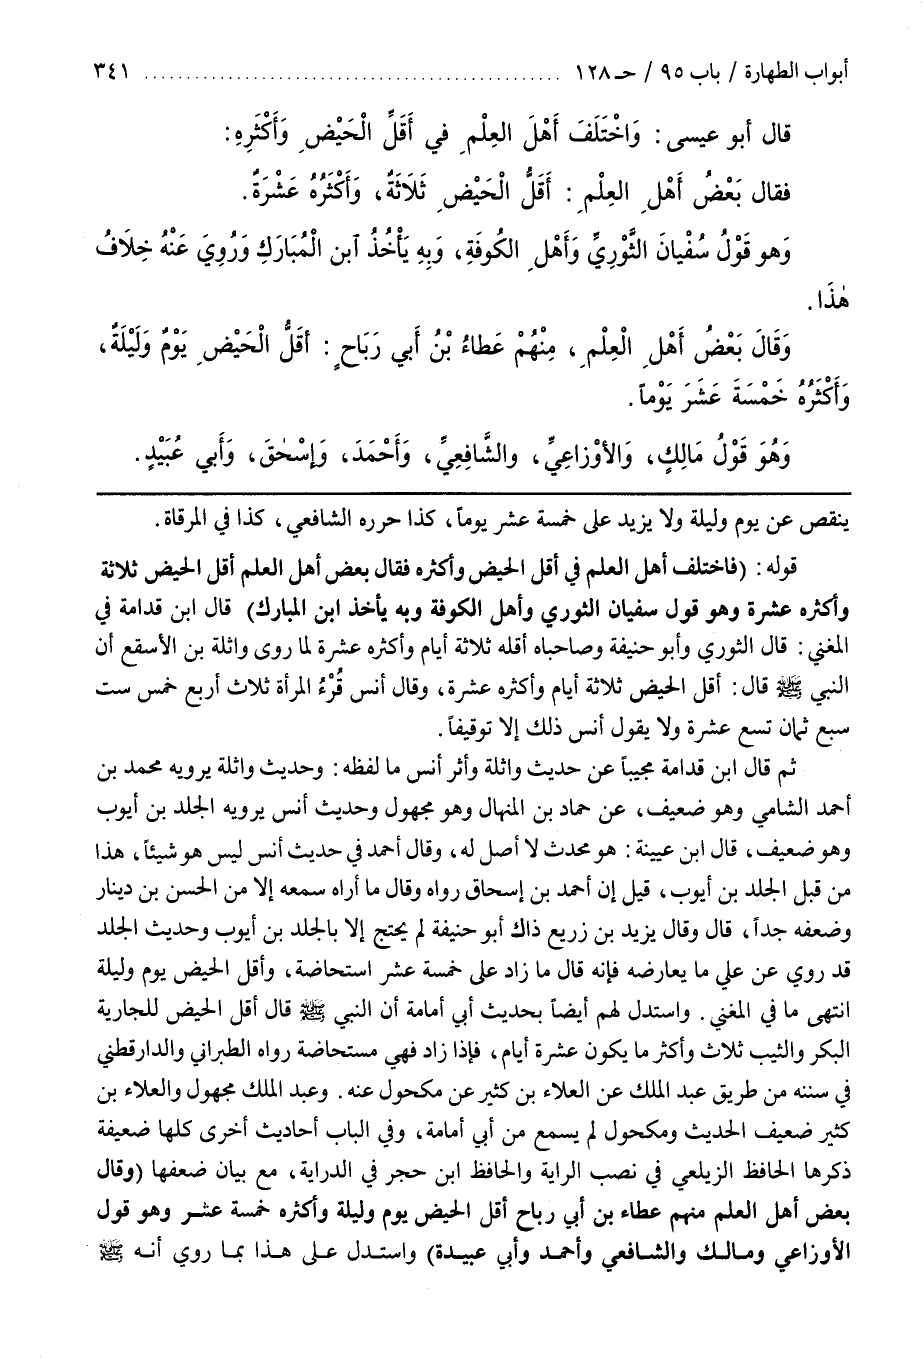 أبواب الطهارة / باب ٩٥ / حـ ١٢٨ ................................................ ٣٤١
قال أبو عيسى: وَاخْتَلَفَ أَهْلَ العِلْمِ في أَقَلِّ الْحَيْضِ وَأَكْثَرِهِ:
فقال بَعْضُ أَهْلِ العِلْمِ: أَقَلُّ الْحَيْضِ ثَلَاثَةٌ، وَأَكْثَرُهُ عَشْرَةٌ.
وَهو قَوْلُ سُفْيانَ الثَّوْرِيِّ وَأَهْلِ الكُوفَةِ، وَبِهِ يَأْخُذُ آبن الْمُبَارَكِ وَرُوِيَ عَنْهُ خِلَافُ
هٰذَا.
وَقَالَ بَعْضُ أَهْلِ الْعِلْمِ، مِنْهُمْ عَطَاءُ بْنُ أَبي رَبَاحٍ: أقَلُّ الْحَيْضِ يَوْمٌ وَلَيْلَةٌ،
وَأَكْثَرُهُ خَمْسَةَ عَشَرَ يَوْماً.
وَهُوَ قَوْلُ مَالِكٍ، وَالأوْزاعِيِّ، والشَّافِعِيِّ، وَأَحْمَدَ، وَإسْحٰقَ، وَأَبي عُبَيْدٍ.
ينقص عن يوم وليلة ولا يزيد على خمسة عشر يوماً، كذا حرره الشافعي، كذا في المرقاة.
قوله: (فاختلف أهل العلم في أقل الحيض وأكثره فقال بعض أهل العلم أقل الحيض ثلاثة
وأكثره عشرة وهو قول سفيان الثوري وأهل الكوفة وبه يأخذ ابن المبارك) قال ابن قدامة في
المغني: قال الثوري وأبو حنيفة وصاحباه أقله ثلاثة أيام وأكثره عشرة لما روى واثلة بن الأسقع أن
النبي ﷺ قال: أقل الحيض ثلاثة أيام وأكثره عشرة، وقال أنس قُرْءُ المرأة ثلاث أربع خمس ست
سبع ثمان تسع عشرة ولا يقول أنس ذلك إلا توقيفاً.
ثم قال ابن قدامة مجيباً عن حديث واثلة وأثر أنس ما لفظه: وحديث واثلة يرويه محمد بن
أحمد الشامي وهو ضعيف، عن حماد بن المنهال وهو مجهول وحديث أنس يرويه الجلد بن أيوب
وهو ضعيف، قال ابن عيينة: هو محدث لا أصل له، وقال أحمد في حديث أنس ليس هو شيئاً، هذا
من قبل الجلد بن أيوب، قيل إن أحمد بن إسحاق رواه وقال ما أراه سمعه إلا من الحسن بن دينار
وضعفه جداً، قال وقال يزيد بن زريع ذاك أبو حنيفة لم يحتج إلا بالجلد بن أيوب وحديث الجلد
قد روي عن علي ما يعارضه فإنه قال ما زاد على خمسة عشر استحاضة، وأقل الحيض يوم وليلة
انتهى ما في المغني. واستدل لهم أيضاً بحديث أبي أمامة أن النبي ﷺ قال أقل الحيض للجارية
البكر والثيب ثلاث وأكثر ما يكون عشرة أيام، فإذا زاد فهي مستحاضة رواه الطبراني والدارقطني
في سننه من طريق عبد الملك عن العلاء بن كثير عن مكحول عنه. وعبد الملك مجهول والعلاء بن
كثير ضعيف الحديث ومكحول لم يسمع من أبي أمامة، وفي الباب أحاديث أخرى كلها ضعيفة
ذكرها الحافظ الزيلعي في نصب الراية والحافظ ابن حجر في الدراية، مع بيان ضعفها (وقال
بعض أهل العلم منهم عطاء بن أبي رباح أقل الحيض يوم وليلة وأكثره خمسة عشر وهو قول
الأوزاعي ومالك والشافعي وأحمد وأبي عبيدة) واستدل على هذا بما روي أنه ﷺ